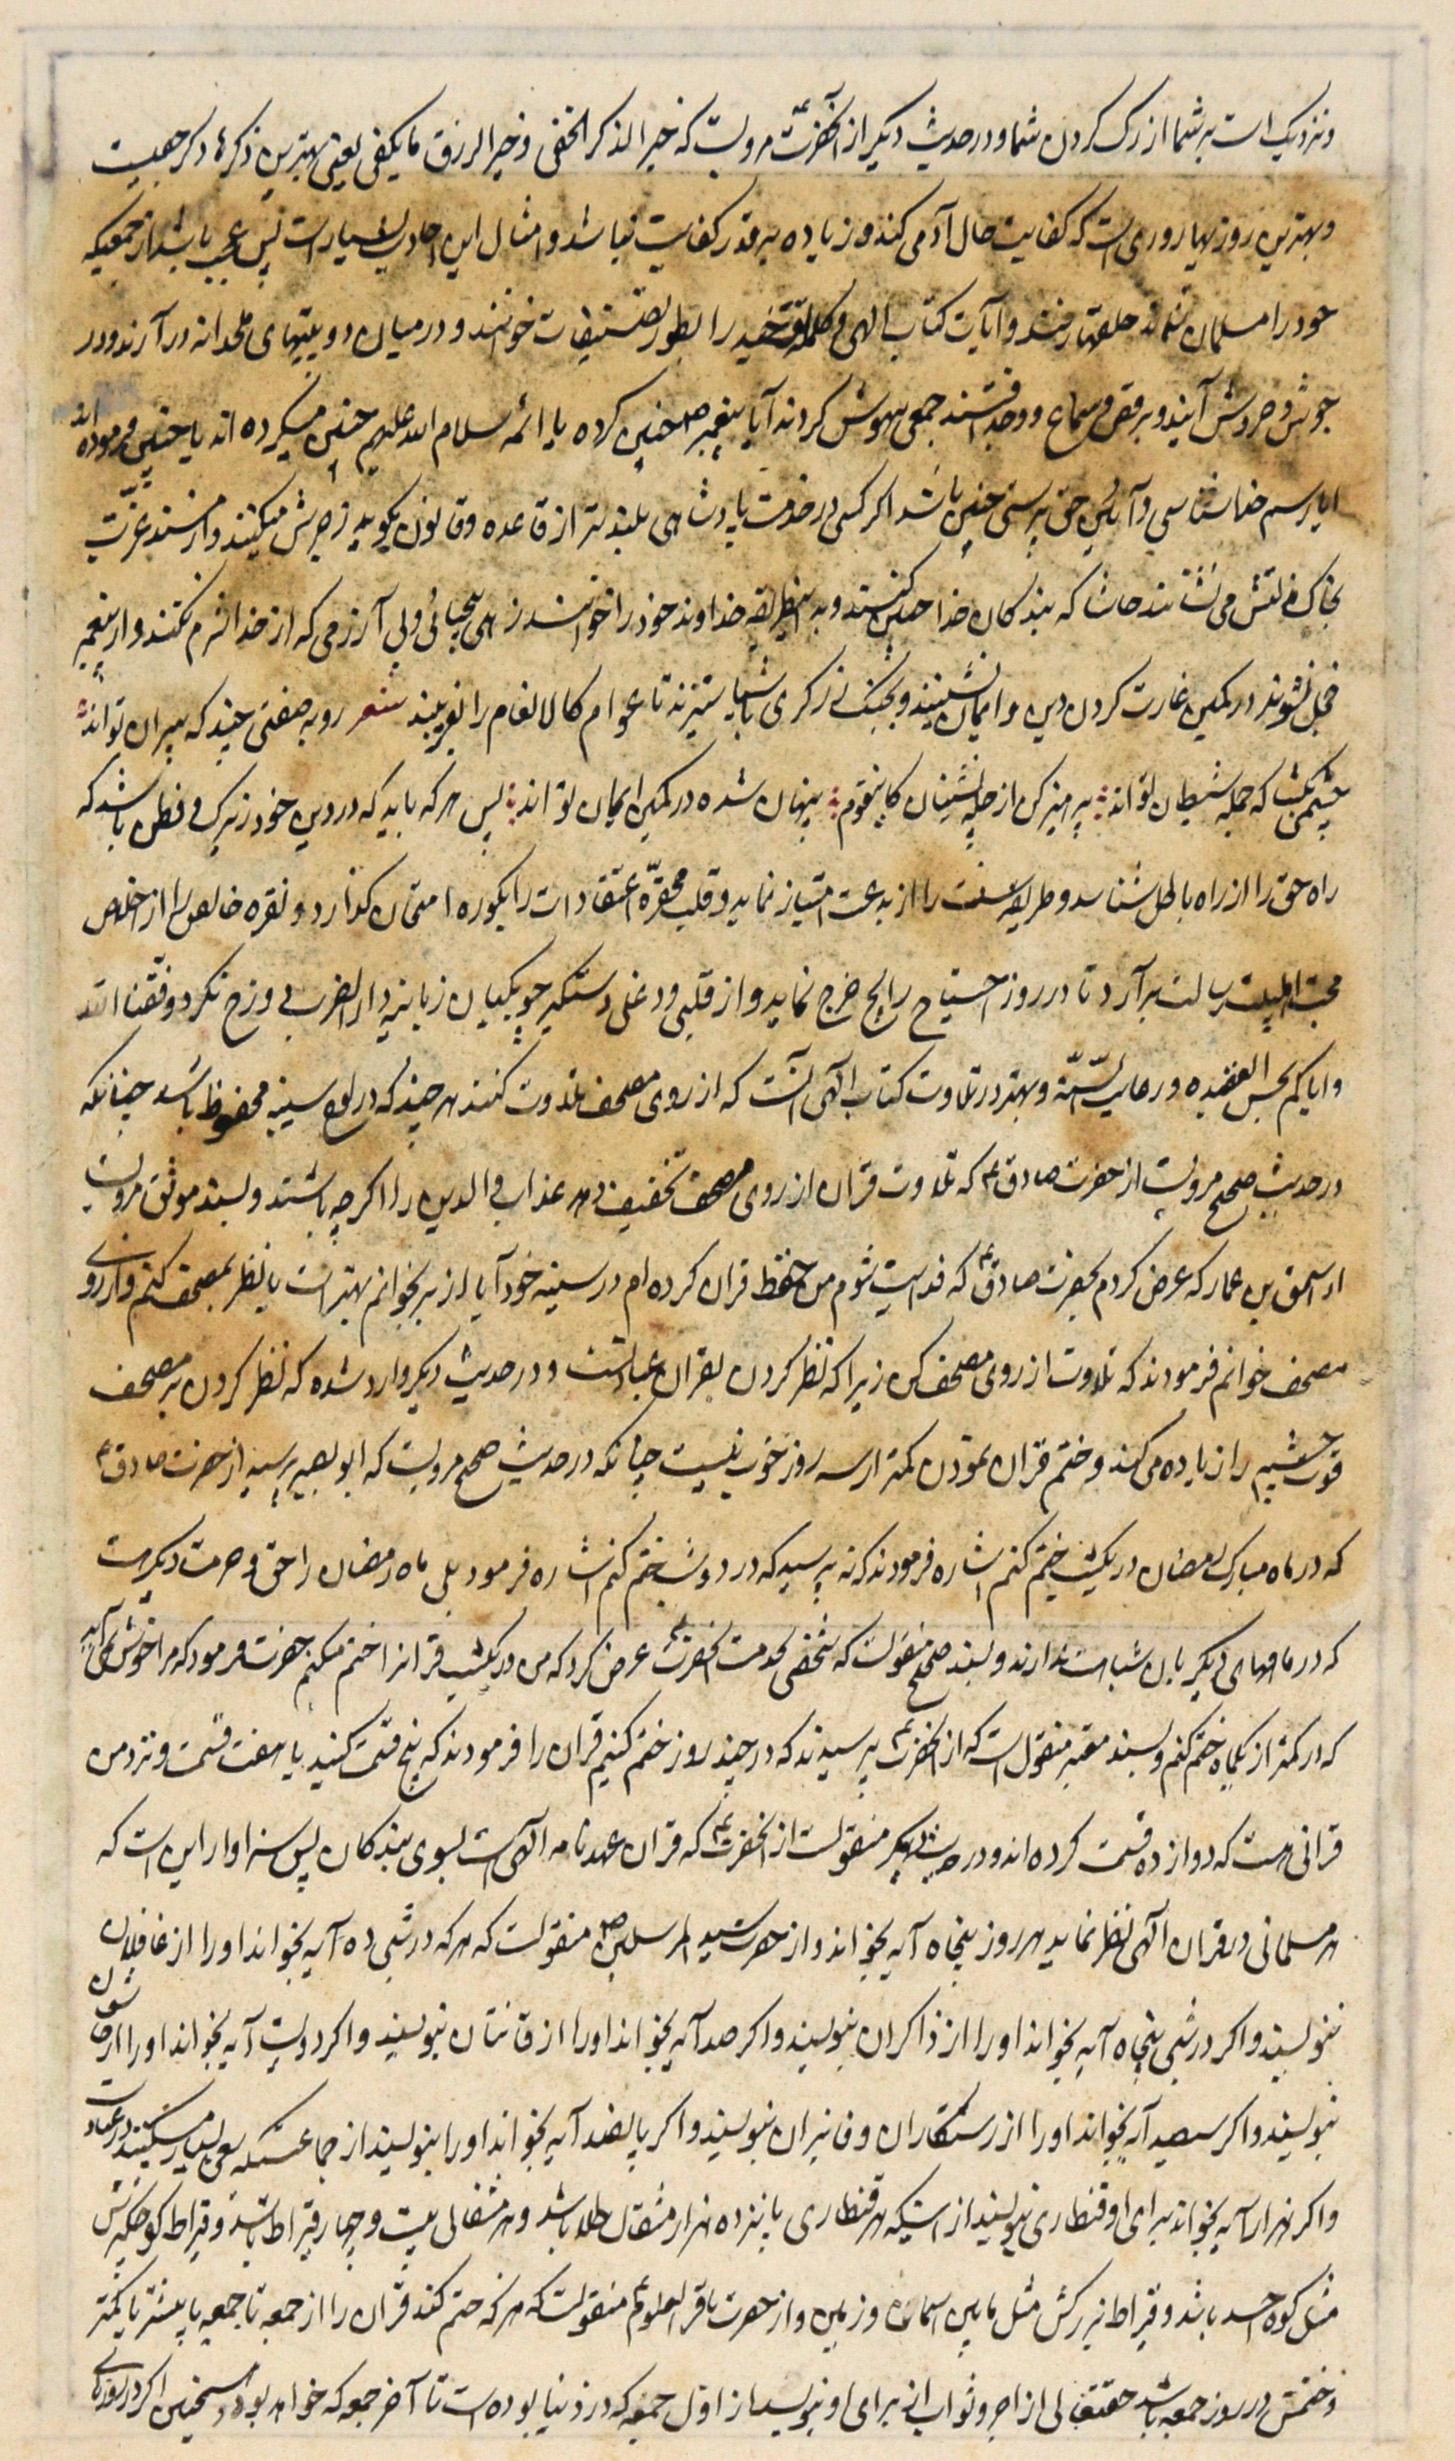 و نزدیک است بر شما از رک کردن شما و در حدیث دیکر از آنحضرت ع مرویست که خیر الذکر الخفی و خیر الرزق ما یکفی یعنی بهترین ذکرها ذکر
و بهترین روزیها روزی است که کفایت حال آدمی کند و زیاده بر قدر کفایت نباشد و امثال این احادیث بسیار است پس عجب باشد از جمعیکه
خود را مسلمان حلقها زنند و آیات کتاب الهی و کلمه توحید را بطور تصنیفات خوانند و در میان دو بیتیهای ملحدانه در آرند و در
جوش و خروش آیند و برقص و سماع و وجد افتند جمعی بیهوش کردند آیا پیغمبر ص چنین کرده یا ائمه سلام الله علیهم چنین میکرده اند یا چنین فرموده اند
ایا رسم خداشناسی و آئین حق پرستی چنین باشد اکر کسی در خدمت پادشاهی بلندتر از قاعده و قانون بکوید زجرش میکنند و از مسند عزت
بخاک مذلتش می نشانند حاشا که بندکان خدا چنین کنند و به اینطریقه خداوند خود را خوانند زهی بیحیائی و بی آزرمی که از خدا شرم نکنند و از پیغمبر
خجل نشوند در کمین غارت کردن دین و ایمان نشینند و بجنک زرکری با شیاطین ستیزند تا عوام کالانعام را بفریبند شعر روبه صفتی چند که پیران تواند
چشمی بکشا که جمله شیطان تواند پرهیز کن از چله نشینان کاینقوم پنهان شده در کمین ایمان تواند پس هر که باید که در دین خود زیرک و فطن باشد که
راه حق را از راه باطل شناسد و طریقه سنت را از بدعت امتیاز نماید و قلب محقره اعتقادات را بکوره امتحان کذارد و نقره خالص را از اخلاص
محبت اهلبیت رسالت بر آرد تا در روز احتیاج رایج خرج نماید و از قلبی و دغلی دستکیر چوبکیان زبانیه دار الضرب دوزخ نکردد وفقنا الله
و ایاکم لحسن العقیده و رعایت السنّة و بهتر در تلاوت کتاب الهی آنست که از روی مصحف تلاوت کنند هر چند که در لوح سینه محفوظ باشد چنانکه
در حدیث صحیح مرویست از حضرت صادق ع که تلاوت قران از روی مصحف تخفیف دهد عذاب والدین را اکر چه باشند و بسند موثق مرویست
از اسحق بن عمار که عرض کردم بحضرت صادق ع که فدایت شوم من حفظ قران کرده ام در سینه خود آیا از بر بخوانم بهتر است یا نظر بمصحف کنم و از روی
مصحف خوانم فرمودند که تلاوت از روی مصحف کن زیرا که نظر کردن بقران عبادتست و در حدیث دیکر وارد شده که نظر کردن بر مصحف
قوت چشم را زیاده می کند و ختم قران نمودن کمتر از سه روز خوب نیست چنانکه در حدیث صحیح مرویست که ابو بصیر پرسید از حضرت صادق ع
که در ماه مبارک رمضان در یکشب ختم کنم اشاره فرمودند که نه پرسید که در دو شب ختم کنم اشاره فرمود بلی ماه رمضان را حق و حرمت دیکر هست
که در ماههای دیکر بان شباهت ندارند و بسند صحیح منقولست که شخصی بخدمت آنحضرت ع عرض کرد که من در یکشب قرانرا ختم میکنم حضرت فرمود که مرا خوش نمی آید
که در کمتر از یکماه ختم کنم و بسند معتبر منقول است که از آنحضرت ع پرسیدند که در چند روز ختم کنیم قران را فرمودند که پنج قسمت کنید یا هفت قسمت و نزد من
قرانی هست که دوازده قسمت کرده اند و در حدیث دیکر منقولست از آنحضرت ع که قران عهد نامه الهی است بسوی بندکان پس سزاوار این است که
هر مسلمانی در قران الهی نظر نماید هر روز پنجاه آیه بخواند و از حضرت سید المرسلین ص منقولست که هر که در شبی ده آیه بخواند او را از غافلان
ننویسند و اکر در شبی پنجاه آیه بخواند او را از ذاکران بنویسند و اکر صد آیه بخواند او را از قانتان بنویسند و اکر دویست آیه بخواند او را از خاشعان
بنویسند و اکر سیصد آیه بخواند او را از رستکاران و فایزان بنویسند و اکر پانصد آیه بخواند او را بنویسند از جماعتیکه سعی بسیار میکنند در عبادت
و اکر هزار آیه بخواند برای او قنطاری بنویسند از نیکی هر قنطاری پانزده هزار مثقال طلا باشد و هر مثقالی بیست و چهار قیراط باشد و قیراط کوچکترینش
مثل کوه احد باشد و قیراط بزرکش مثل ما بین اسمان و زمین و از حضرت باقر العلوم ع منقولست که هر که ختم کند قران را از جمعه تا جمعه یا بیشتر یا کمتر
و ختمش در روز جمعه باشد حقتعالی از اجر و ثواب برای او بنویسد از اول جمعه که در دنیا بوده است تا آخر جمعه که خواهد بود و همچنین اکر در روزهای